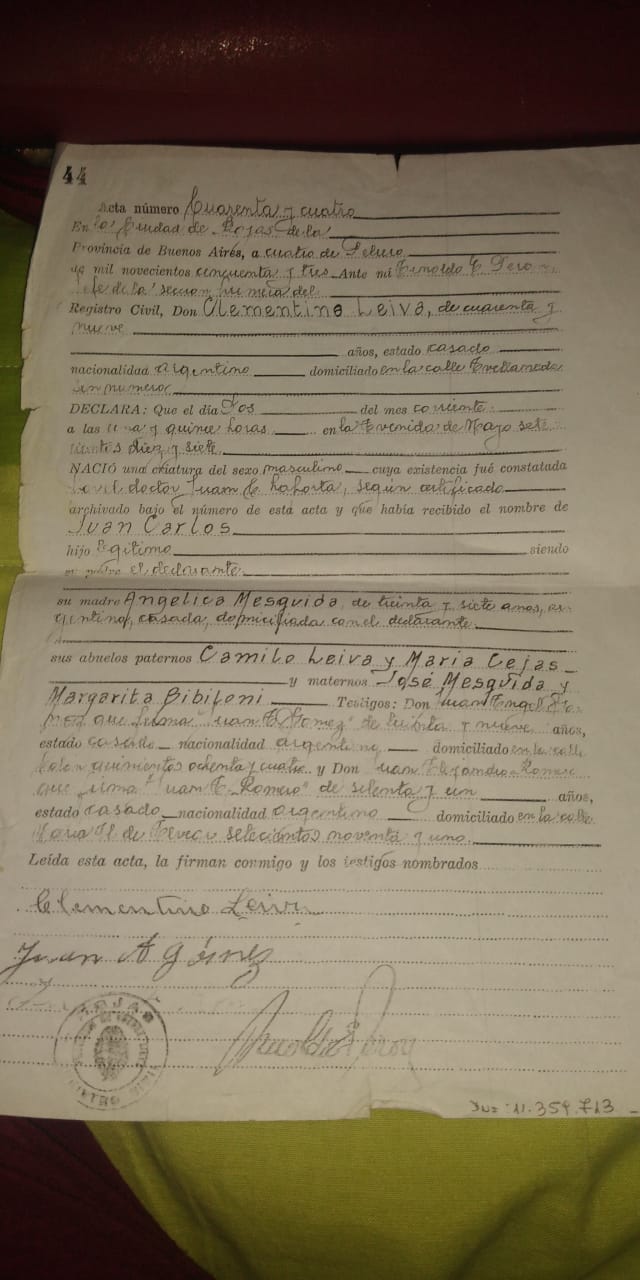 44
Acta número Cuarenta y cuatro
En la Ciudad de Rojas de la
Provincia de Buenos Aires, a cuatro de Febrero
de mil novecientos cincuenta y tres Ante mi Arnoldo E.
Jefe de la seccion primera del
Registro Civil, Don Clementino Leiva, de cuarenta y
nueve
años, estado casado
nacionalidad argentino domiciliado en la calle Avellaneda
sin numero
DECLARA: Que el día dos del mes corriente
a las una y quince horas en la Avenida de Mayo sete
cientos diez y siete
NACIÓ una criatura del sexo masculino cuya existencia fué constatada
por el doctor Juan, según certificado
archivado bajo el número de esta acta y que había recibido el nombre de
Juan Carlos
hijo legitimo siendo
su padre el declarante
su madre Angelica Mesquida, de treinta y siete anos, ar
gentina, casada, domiciliada con el declarante
sus abuelos paternos Camilo Leiva y Maria Cejas
y maternos José Mesquida y
Margarita Bibiloni Testigos: Don Juan Angel Go
mez que firma "Juan A Gomez" de treinta y nueve años,
estado casado nacionalidad argentino domiciliado en la calle
Colon quinientos ochenta y cuatro y Don Juan Alejandro Romero
que firma "Juan A. Romero" de setenta y un años,
estado casado nacionalidad argentino domiciliado en la calle
setecientos noventa y uno
Leída esta acta, la firman conmigo y los testigos nombrados
Clementino Leiva
Juan A Gómez
ROJAS
11.354.713